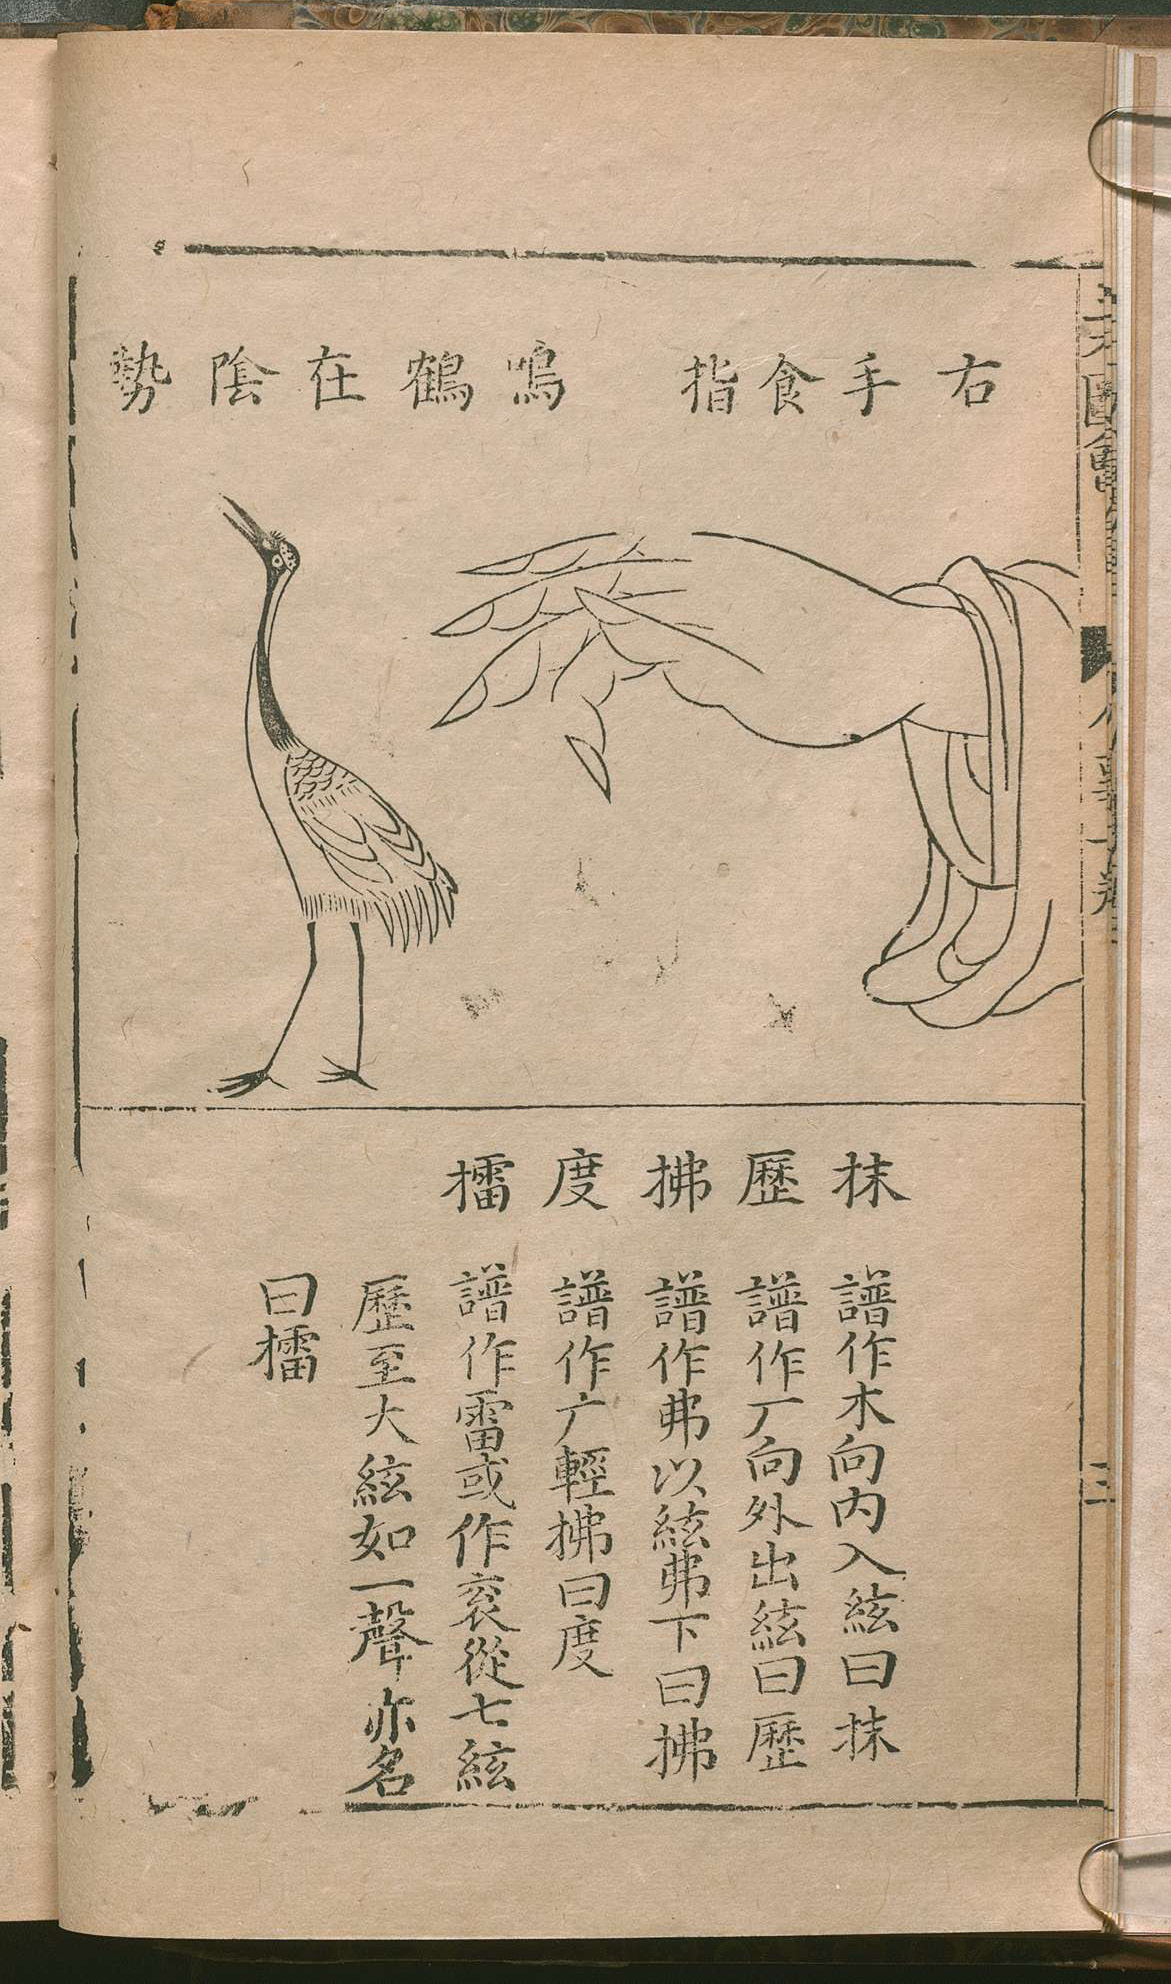 右手食指
鳴鶴在陰勢
抹 譜作木向内入絃曰抹
歷 譜作厂向外出絃曰歷
拂 譜作弗以絃弗下曰拂
度 譜作广輕拂曰度
擂 譜作雷或作衮從七絃
歷至大絃如一聲亦名
曰擂
圖會
三